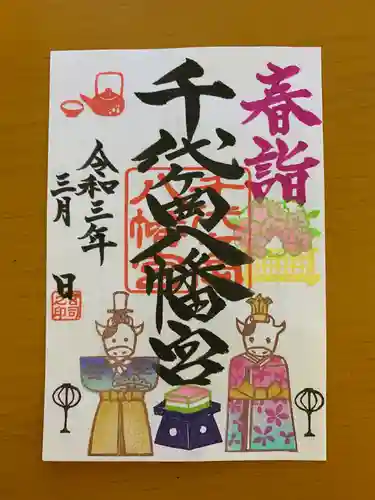 春詣
千代ヶ岡八幡宮
令和三年
三月 日